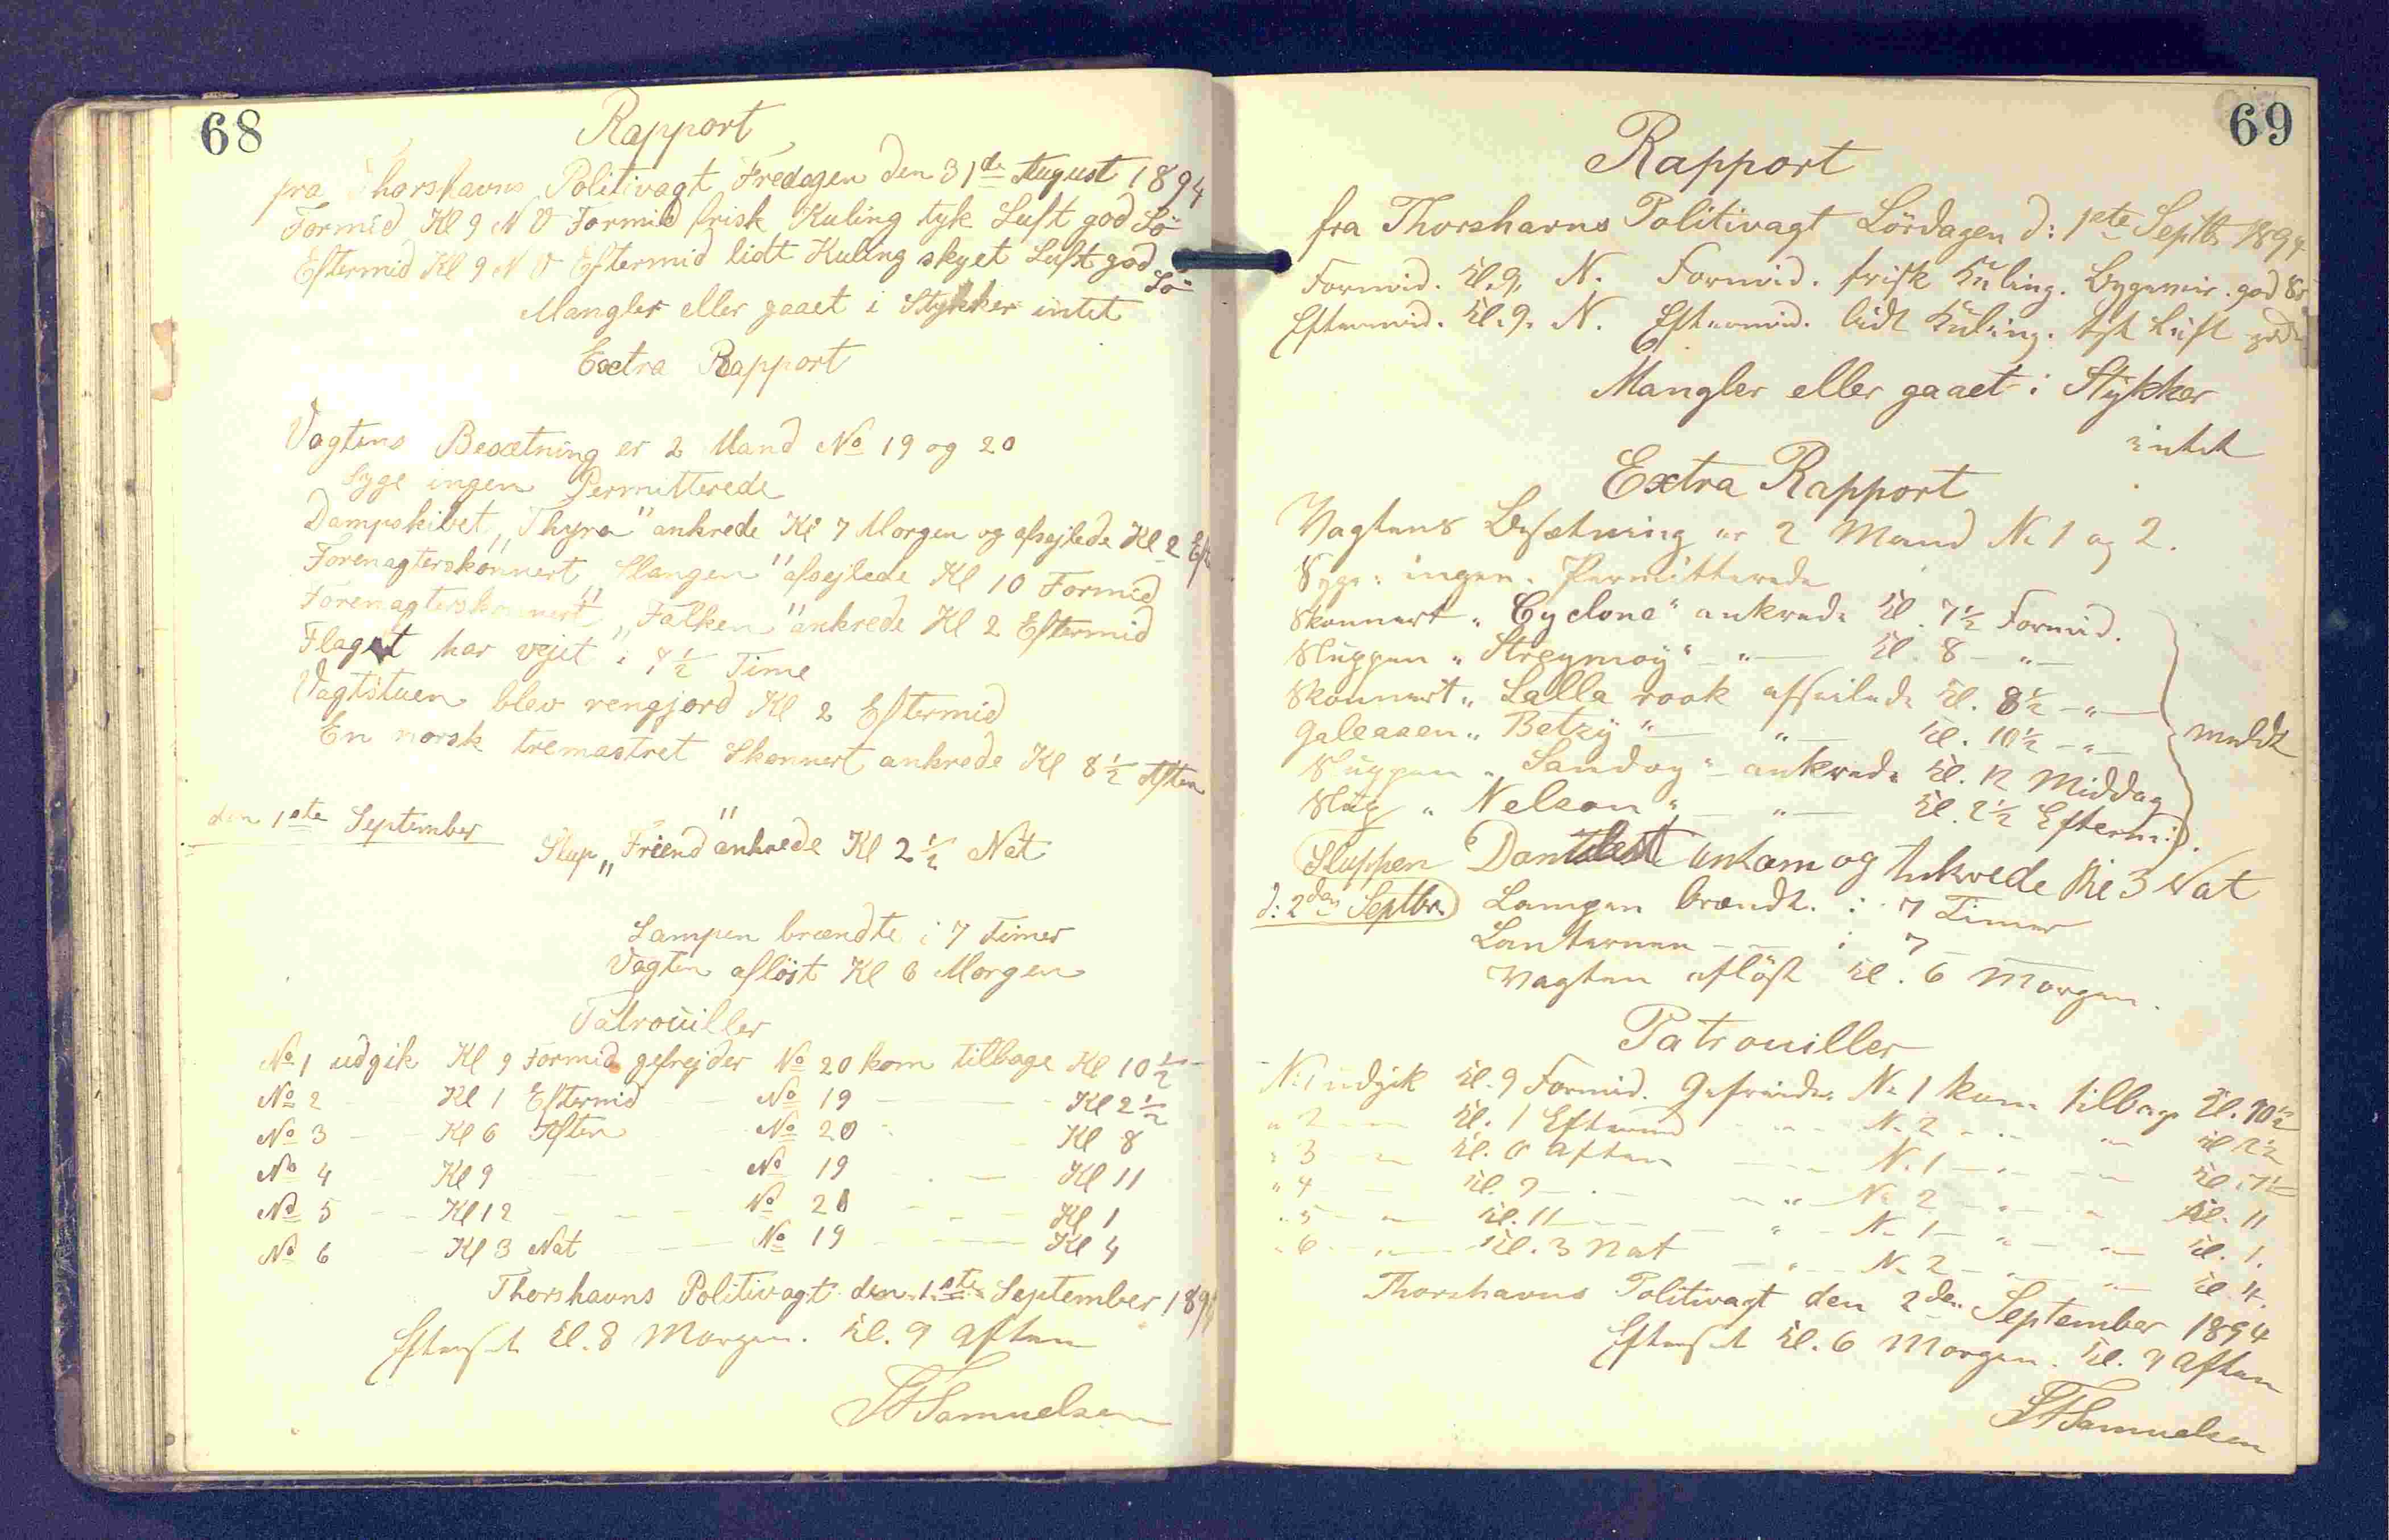 68
Rapport
fra Thorshavns Politivagt Fredagen den 31de August 1894
Formid Kl 9 N O Formid frisk Kuling tyk Luft god Sö
Eftermid Kl 9 N O Eftermid lidt Kuling skyet Luft god Sö
Mangler eller gaaet i Stykker intet
Extra Rapport
Vagtens Besætning er 2 Mand No 19 og 20
Syge ingen Permitterede
Dampskibet „Thyra" ankrede Kl 7 Morgen og afsejlede Kl 2 Eft
Forenagterskonnert „Slangen" afsejlede Kl 10 Formid
Forenagterskonnert „Falken" ankrede Kl 2 Eftermid
Flaget har vejet i 7½ Time
Vagtstuen blev rengjord Kl 2 Eftermid
En norsk tremastret Skonnert ankrede Kl 8½ Aften
den 1ste September
Slup „Friend" ankrede Kl 2½ Nat
Lampen brændte i 7 Timer
Vagten aflöst Kl 6 Morgen
Patrouiller
No 1 udgik Kl 9 Formid gefrejder No 20 kom tilbage Kl 10½
No 2 — Kl 1 Eftermid — No 19 — Kl 2½
No 3 — Kl 6 Aften — No 20 — Kl 8
No 4 — Kl 9 — No 19 — Kl 11
No 5 — Kl 12 — No 20 — Kl 1
No 6 — Kl 3 Nat — No 19 — Kl 4
Thorshavns Politivagt den 1ste September 1894
Efterset Kl. 8 Morgen. Kl. 9 Aften
Samuelsen
69
Rapport
fra Thorshavns Politivagt Lördagen d: 1ste Septbr 1894
Formid. Kl. 9. N. Formid. frisk Kuling. Bygemir. god Sö
Eftermid. Kl. 9. N. Eftermid. lidt Kuling. tyk Luft god
Mangler eller gaaet i Stykker
intet
Extra Rapport
Vagtens Besætning er 2 Mand No 1 og 2.
Syge: ingen. Permitterede
Skonnert „Cyclone" ankrede Kl. 7½ Formid.
Sluppen „Streymoÿ" — „ — Kl. 8 — „ —
Skonnert „Lalla rook afseilede Kl. 8½ — „ —
Galeasen „Betzÿ" — „ — Kl. 10½ — „ — meldt
Sluppen „Sandoy" ankrede Kl. 12 Middag
Slup „Nelson" — „ — Kl. 2½ Eftermid.
Sluppen ankom og Ankrede Kl 3 Nat
d: 2den Septbr. Lampen brændte i 7 Timer
Lanternen — i 7 —
Vagten aflöst Kl. 6 Morgen.
Patrouiller
No 1 udgik Kl. 9 Formid. Gefreider No 1 kom tilbage Kl. 10½
„ 2 — Kl. 1 Eftermid — No 2 — „ — Kl 2½
„ 3 — Kl. 6 Aften — No 1 — „ — Kl. 7½
„ 4 — Kl. 9 — „ — No 2 — „ — Kl. 11
„ 5 — „ — Kl. 11 — „ — No 1 — „ — Kl. 1.
„ 6 — „ — Kl. 3 Nat — „ — No 2 — „ — Kl. 4.
Thorshavns Politivagt den 2den September 1894
Efterset Kl. 6 Morgen. Kl. 9 Aften
Samuelsen